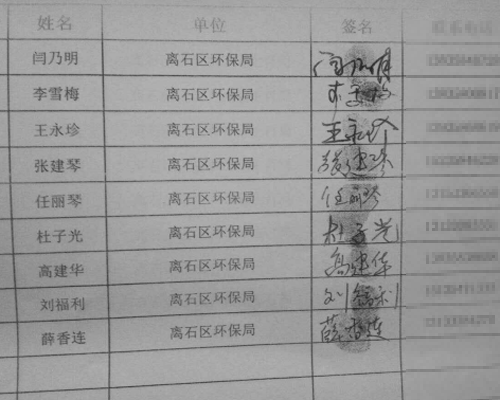 姓名 单位 签名 联系电话
闫乃明 离石区环保局 闫乃明
李雪梅 离石区环保局 李雪梅
王永珍 离石区环保局 王永珍
张建琴 离石区环保局 张建琴
任丽琴 离石区环保局 任丽琴
杜子光 离石区环保局 杜子光
高建华 离石区环保局 高建华
刘福利 离石区环保局 刘福利
薛香连 离石区环保局 薛香连